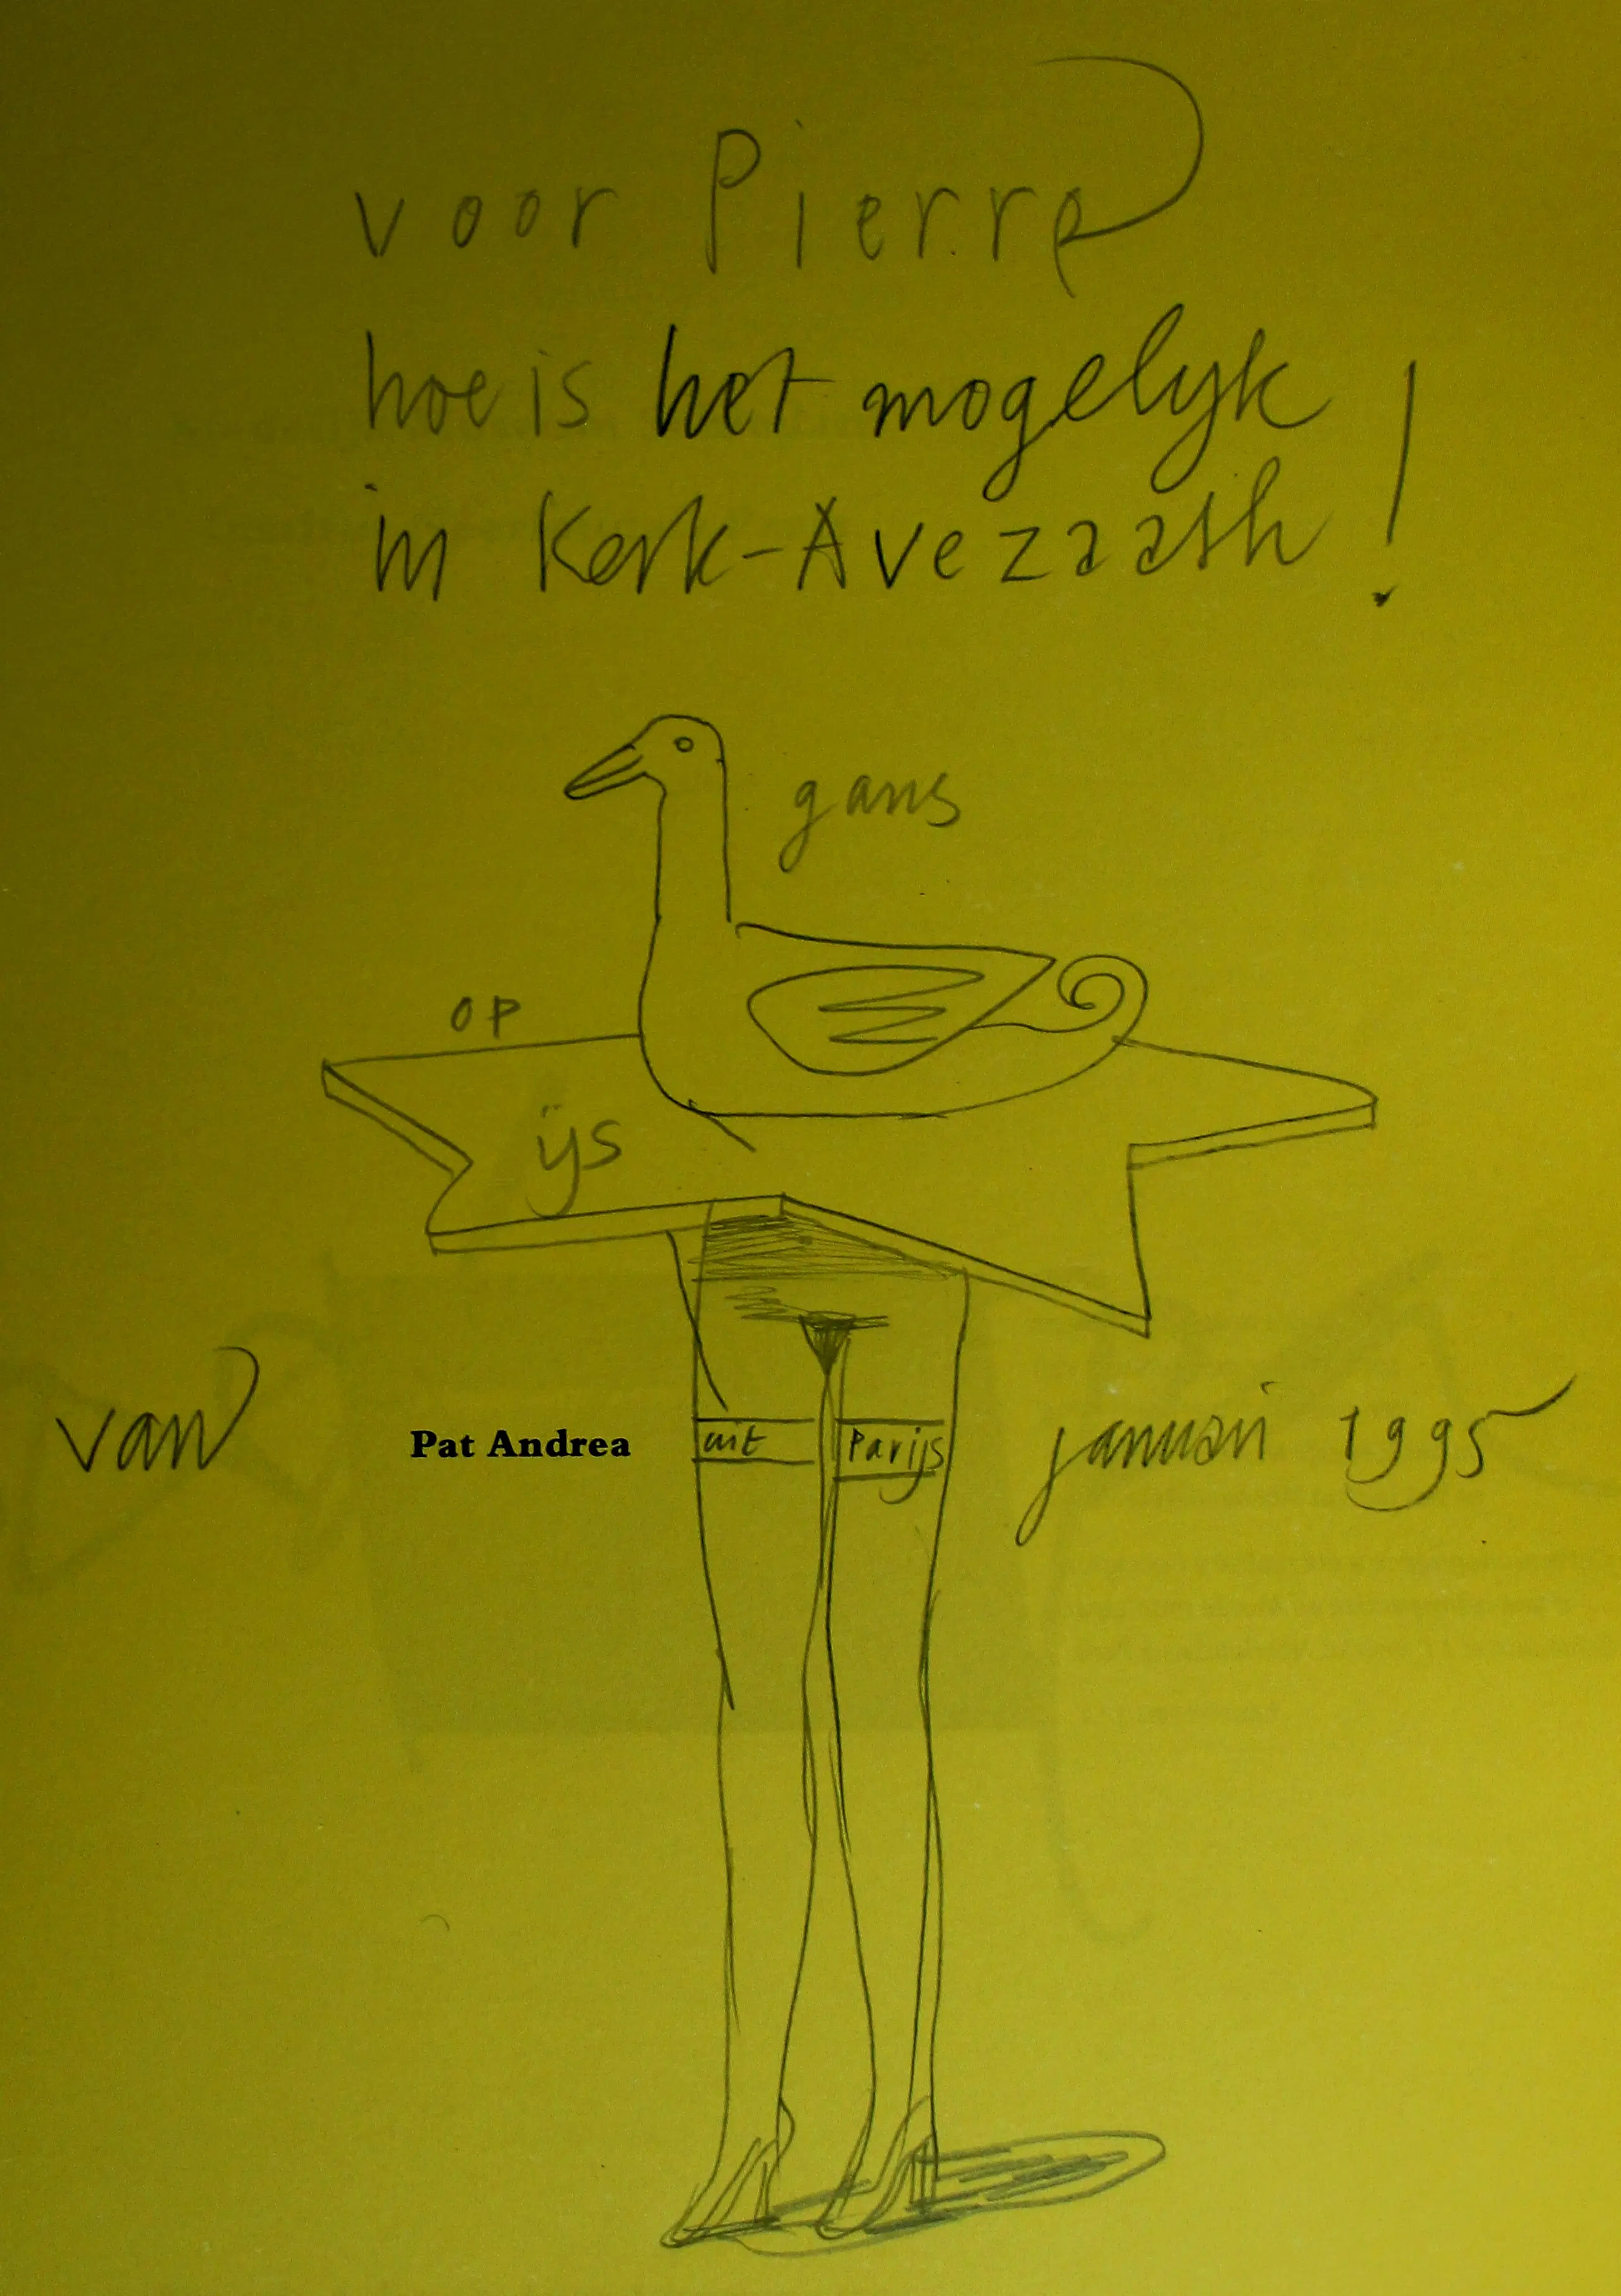 voor Pierre
hoe is het mogelyk
in Kerk-Avezaath!
gans
op
ijs
van Pat Andrea uit Parijs januari 1995